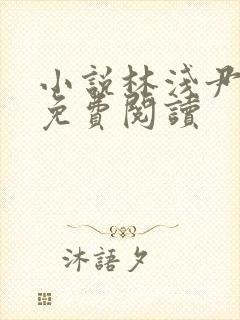 小說林淺尹
免費閱讀
沐語夕